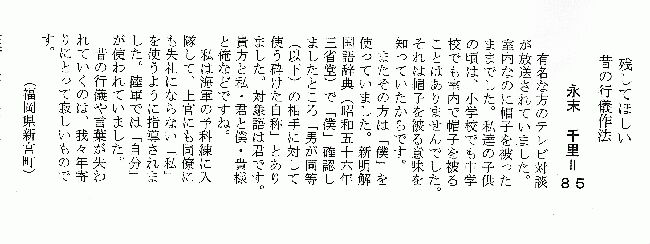 残してほしい
昔の行儀作法
永末　千里＝８５
有名な方のテレビ対談
が放送されていました。
室内なのに帽子を被った
ままでした。私達の子供
の頃は、小学校でも中学
校でも室内で帽子を被る
ことはありませんでした。
それは帽子を被る意味を
知っていたからです。
またその方は「僕」を
使っていました。新明解
国語辞典（昭和五十六年
三省堂）で「僕」確認し
ましたところ「男が同等
（以下）の相手に対して
使う砕けた自称」とあり
ました。対象語は君です。
貴方と私・君と僕・貴様
と俺などですね。
私は海軍の予科練に入
隊して、上官にも同僚に
も失礼にならない「私」
を使うように指導されま
した。陸軍では「自分」
が使われていました。
昔の行儀や言葉が失わ
れていくのは、我々年寄
りにとって寂しいもので
す。
（福岡県新宮町）